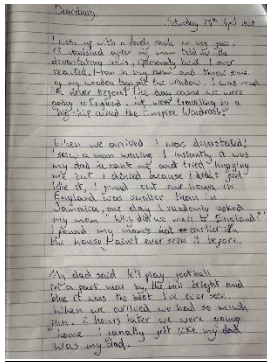 Dear diary
Saturday 25th April 1948
I woke up with a lovely smile on my face.
It vanished after my mum told me the
devastating news, I personally think I over
reacted. I ran in my room and threw some
of my wooden toys out the window. I was mad
like never before! The day came we were
going to England. We were travelling on a
big ship called the Empire Windrush.
When we arrived I was devastated!
I saw a man waving, instantly it was
my dad he saw me and tried hugging
me but I denied because I didn't feel
like it, I found out our house in
England was smaller than in
Jamaica, one day I randomly asked
my mom "Why did we move to England?"
I found my mum's hat earlier in
the house I hadn't ever seen it before.
My dad said let's play football
in a park near by the sun bright and
blue it was the best I've ever seen.
When we arrived we had so much
fun. 2 hours later we were going
home I finally felt like my dad
was my dad.